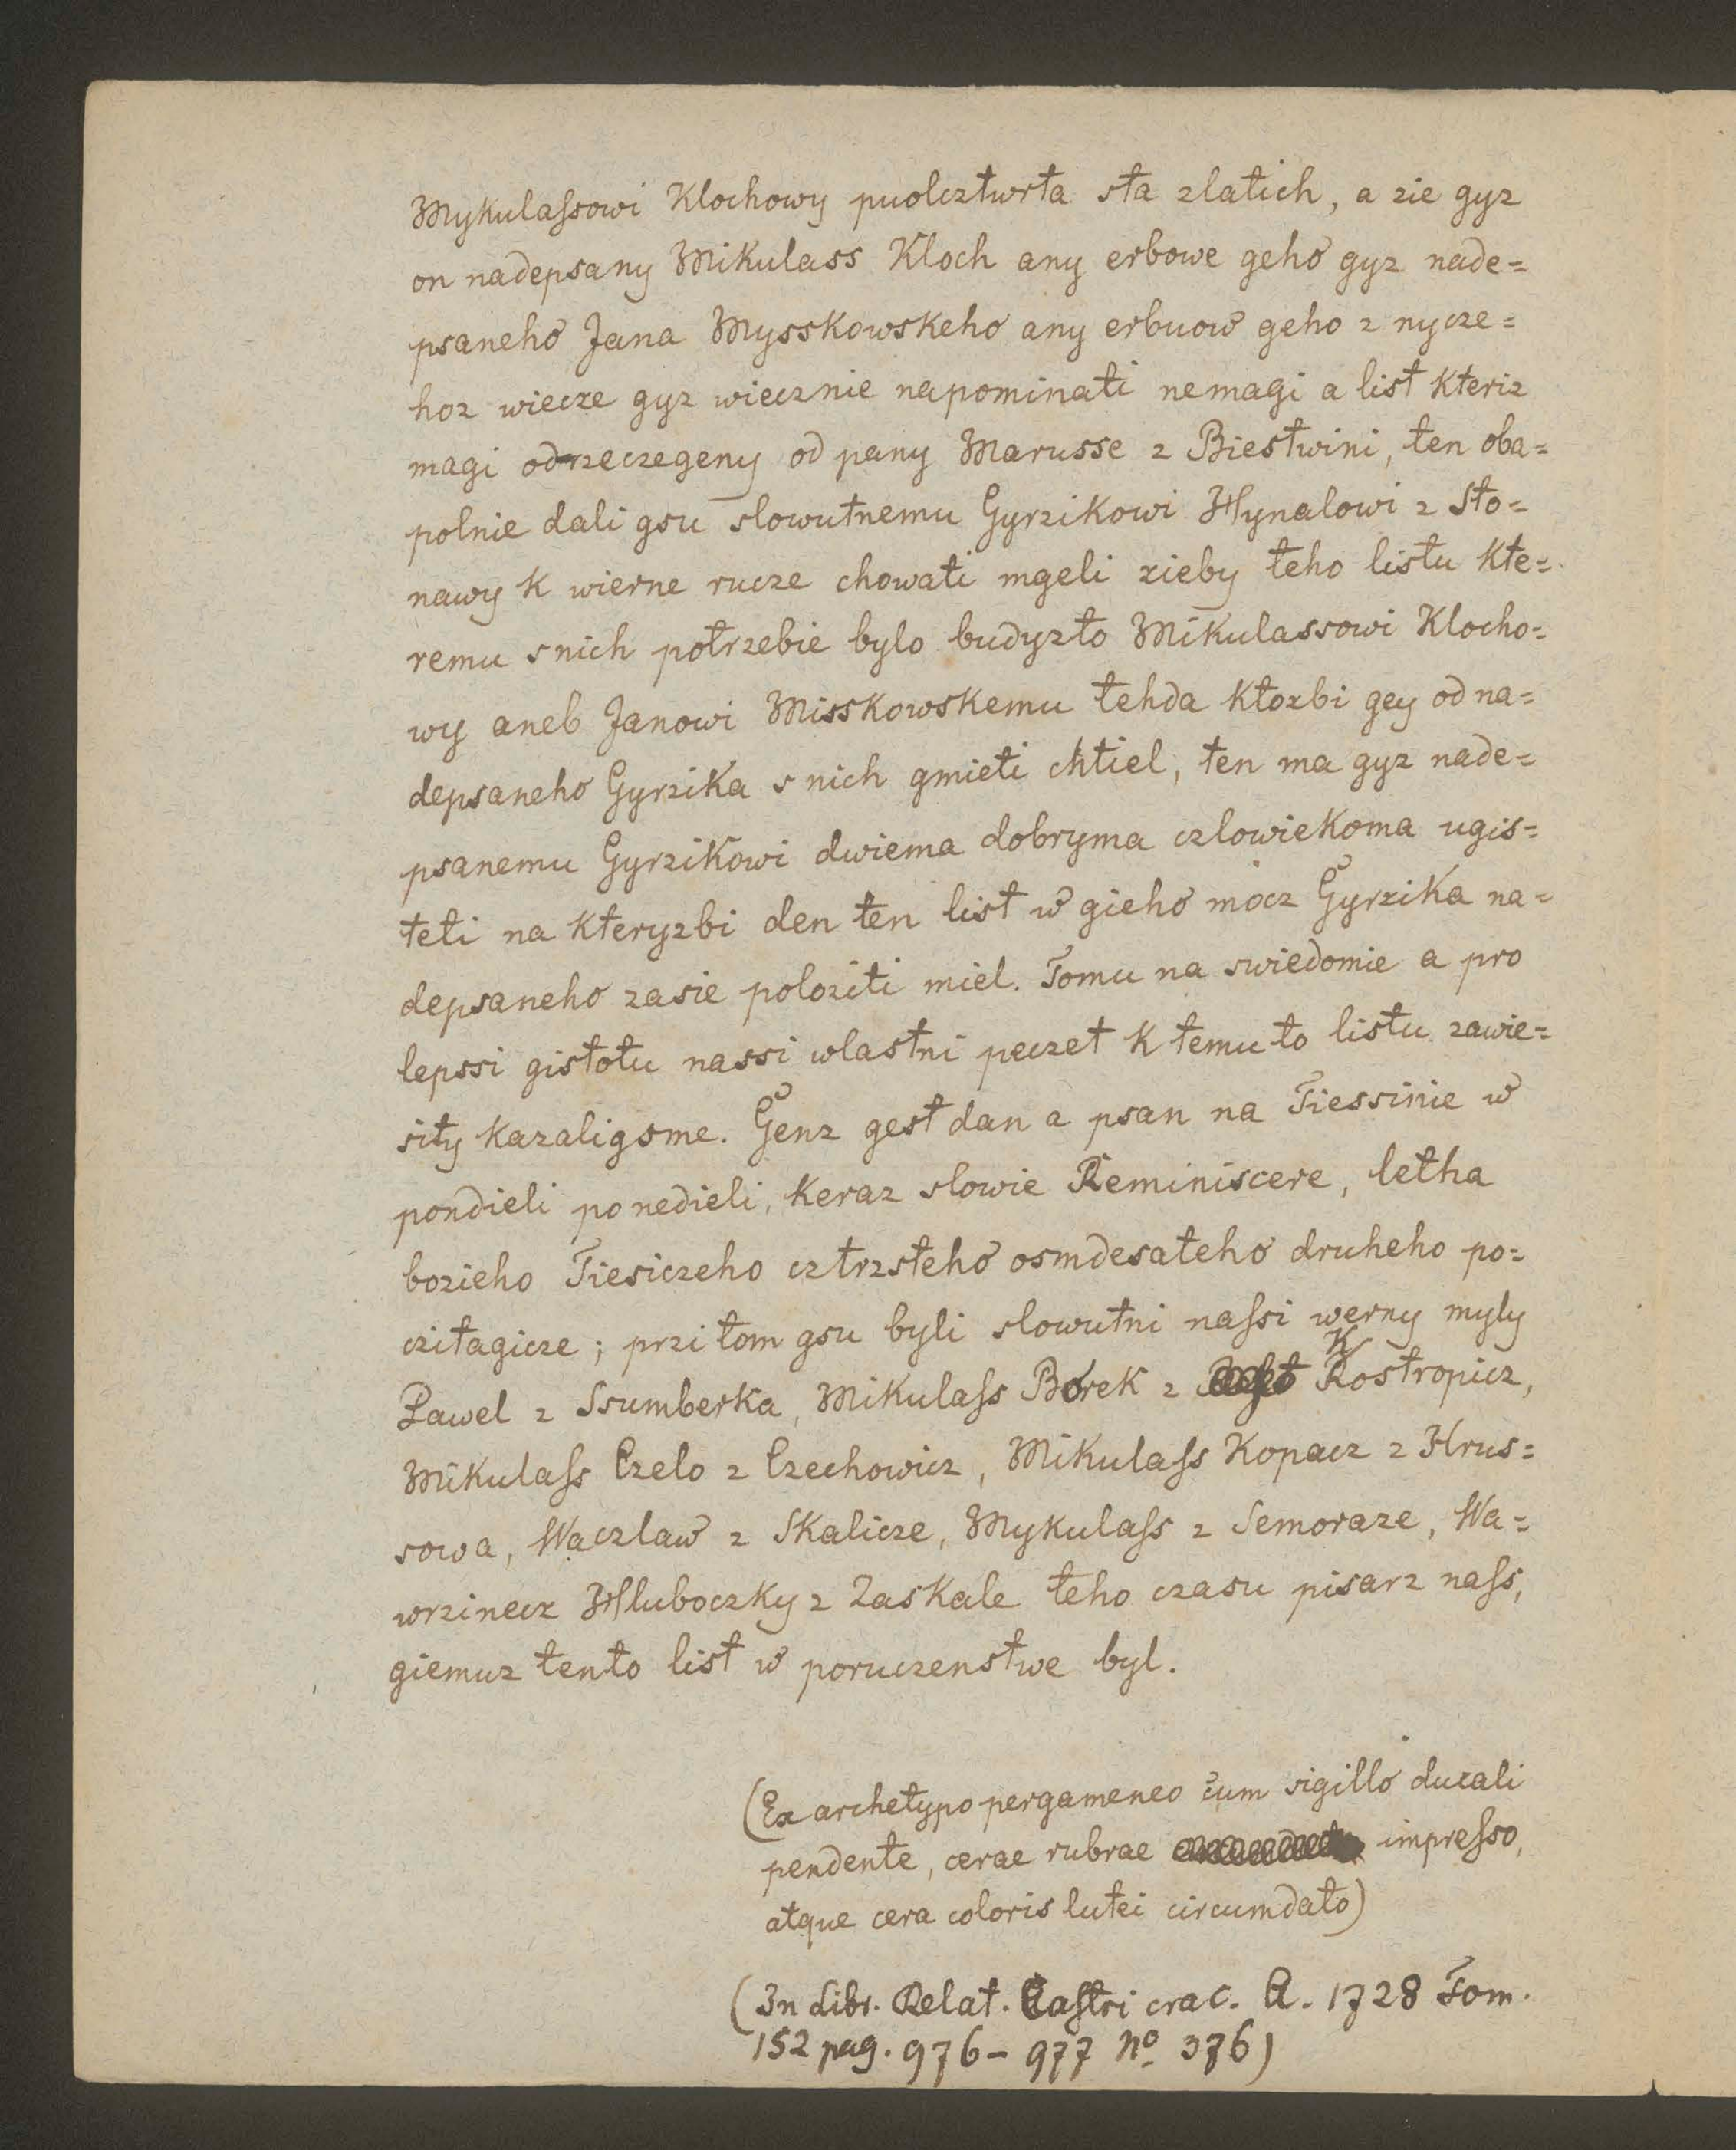 Mykulaſsowi Klochowy puolcztwrta sta zlatich, a zie gyz
on nadepsany Mikulass Kloch any erbowe geho gyz nade=
psaneho Jana Mysskowskeho any erbuow geho z nycze=
hoz wiecze gyz wiecznie napominati nemagi a list kteriz
magi odrzeczegeny od pany Marusse z Biestwini, ten oba=
polnie dali gsu slowutnemu Gyrzikowi Hynalowi z Sto=
nawy k wierne rucze chowati mgeli zieby teho listu kte=
remu snich potrzebie bylo budyzto Mikulassowi Klocho=
wy aneb Janowi Misskowskemu tehda ktozbi gey od na=
depsaneho Gyrzika s nich gmieti chtiel, ten ma gyz nade=
psanemu Gyrzikowi dwiema dobryma czlowiekoma ugis=
teti na kteryzbi den ten list w gieho mocz Gyrzika na=
depsaneho zasie poloziti miel. Tomu na swiedomie a pro
lepssi gistotu nassi wlastni peczet k temuto listu zawie=
sity kazaligsme. Genz gest dan a psan na Tiessinie w
pondieli po nedieli, keraz slowie Reminiscere, letha
bozieho Tiesiczeho cztrzsteho osmdesateho druheho po=
czitagicze; przi tom gsu byli slowutni naſsi werny myly
Pawel z Ssumberka, Mikulaſs Borek z Kostropicz,
Mikulaſs Czelo z Czechowicz, Mikulaſs Kopacz z Hrus=
sowa, Waczlaw z Skalicze, Mykulaſs z Semoraze, Wa=
wrzinecz Hluboczky z Zaskale teho czasu pisarz naſs,
giemuz tento list w poruczenstwe byl.
(Ex archetypo pergameneo cum sigillo ducali
pendente, cerae rubrae impreſso,
atque cera coloris lutei circumdato)
(In Libr. Relat. Caſtri crac. A. 1728 Tom.
152 pag. 976-977 No 376)